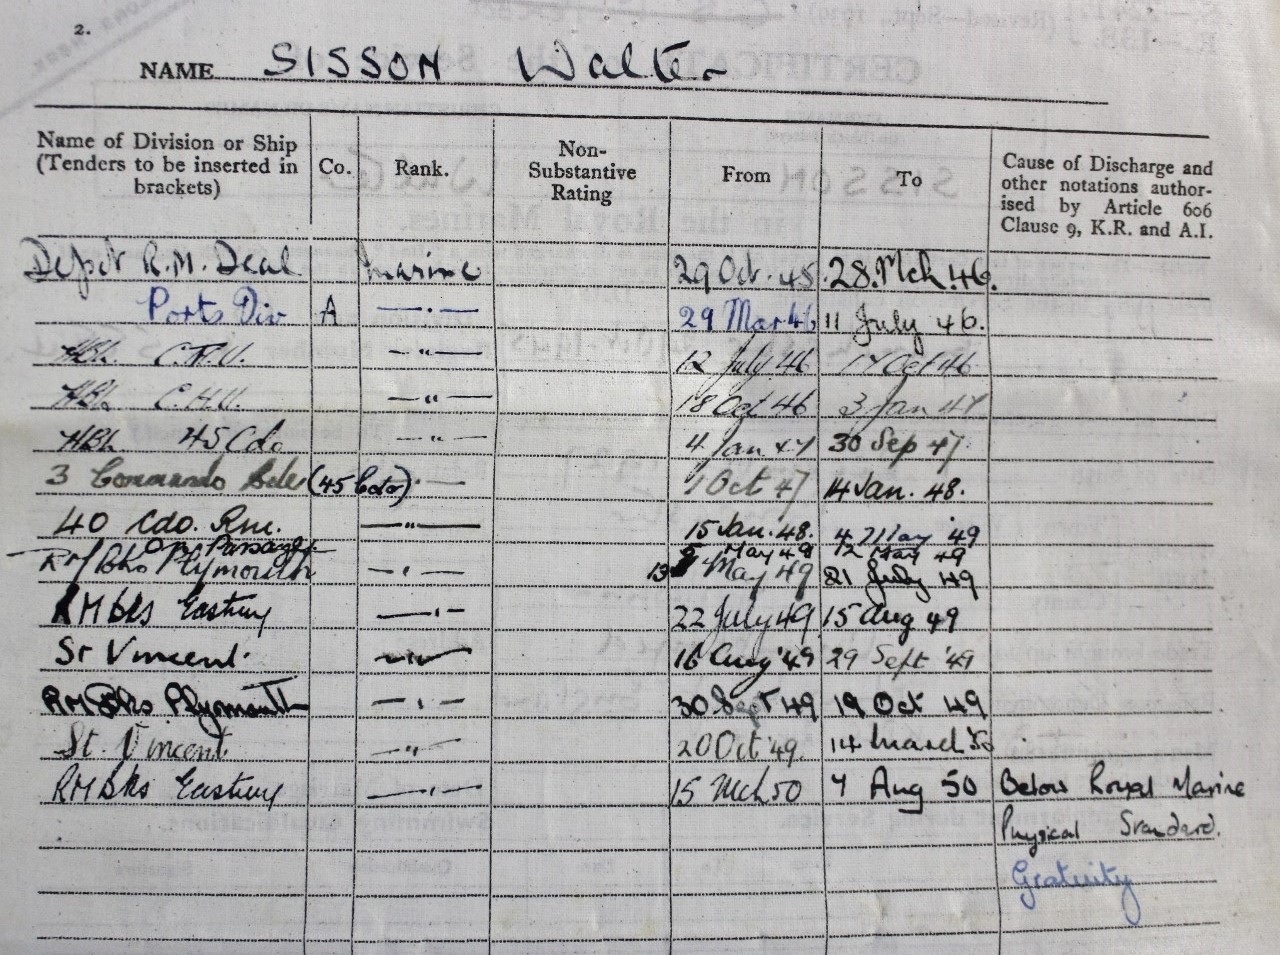 2.
NAME SISSON Walter
Name of Division or Ship (Tenders to be inserted in brackets) Co. Rank. Non-Substantive Rating From To Cause of Discharge and other notations authorised by Article 606 Clause 9, K.R. and A.I.
Depot R.M. Deal Marine 29 Oct. 45 28. Mch. 46.
Ports Div A —·— 29 Mar 46 11 July 46.
—"— 12 July 46 17 Oct 46
—"— 18 Oct 46 3 Jan 47
45 Cdo —"— 4 Jan 47 30 Sep 47.
3 Commando Bde (45 Cdo) — 1 Oct 47 14 Jan. 48.
40 Cdo. R.M. —"— 15 Jan. '48. 4 May '49
On Passage 5 May 49 12 May 49
RM Bks Plymouth —"— 13 May 49 21 July 49
RM Bks Eastney —"— 22 July 49 15 Aug 49
St Vincent. —"— 16 Aug '49 29 Sept '49
RM Bks Plymouth —"— 30 Sept 49 19 Oct 49
St. Vincent —"— 20 Oct 49. 14 March '50
RM Bks Eastney —"— 15 Mch 50 7 Aug 50 Below Royal Marine
Physical Standard.
Gratuity